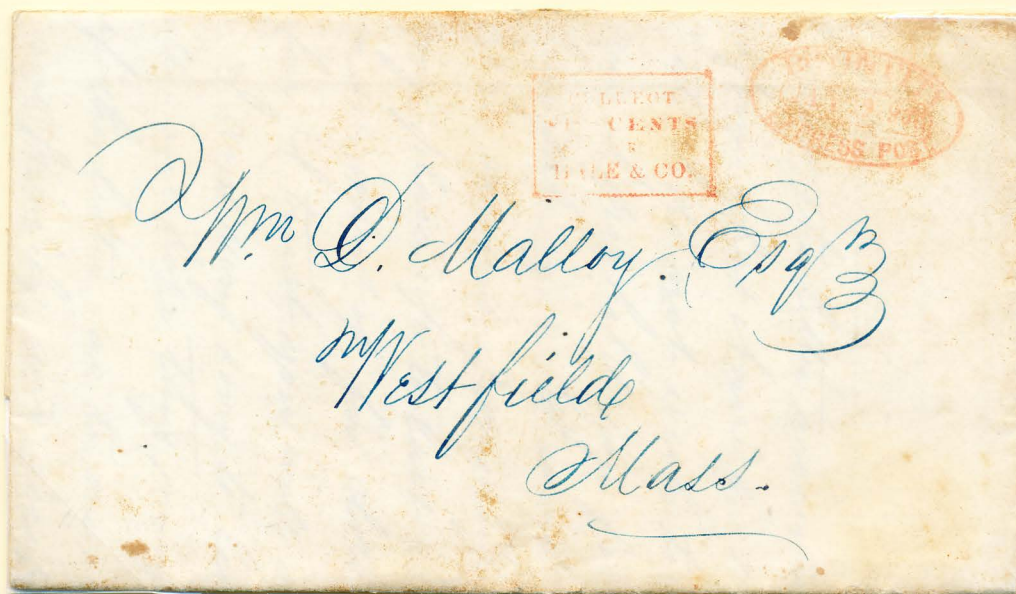 COLLECT
CENTS
HALE & CO.
EXPRESS POST
Wm D. Malloy. Esq
Westfield
Mass.